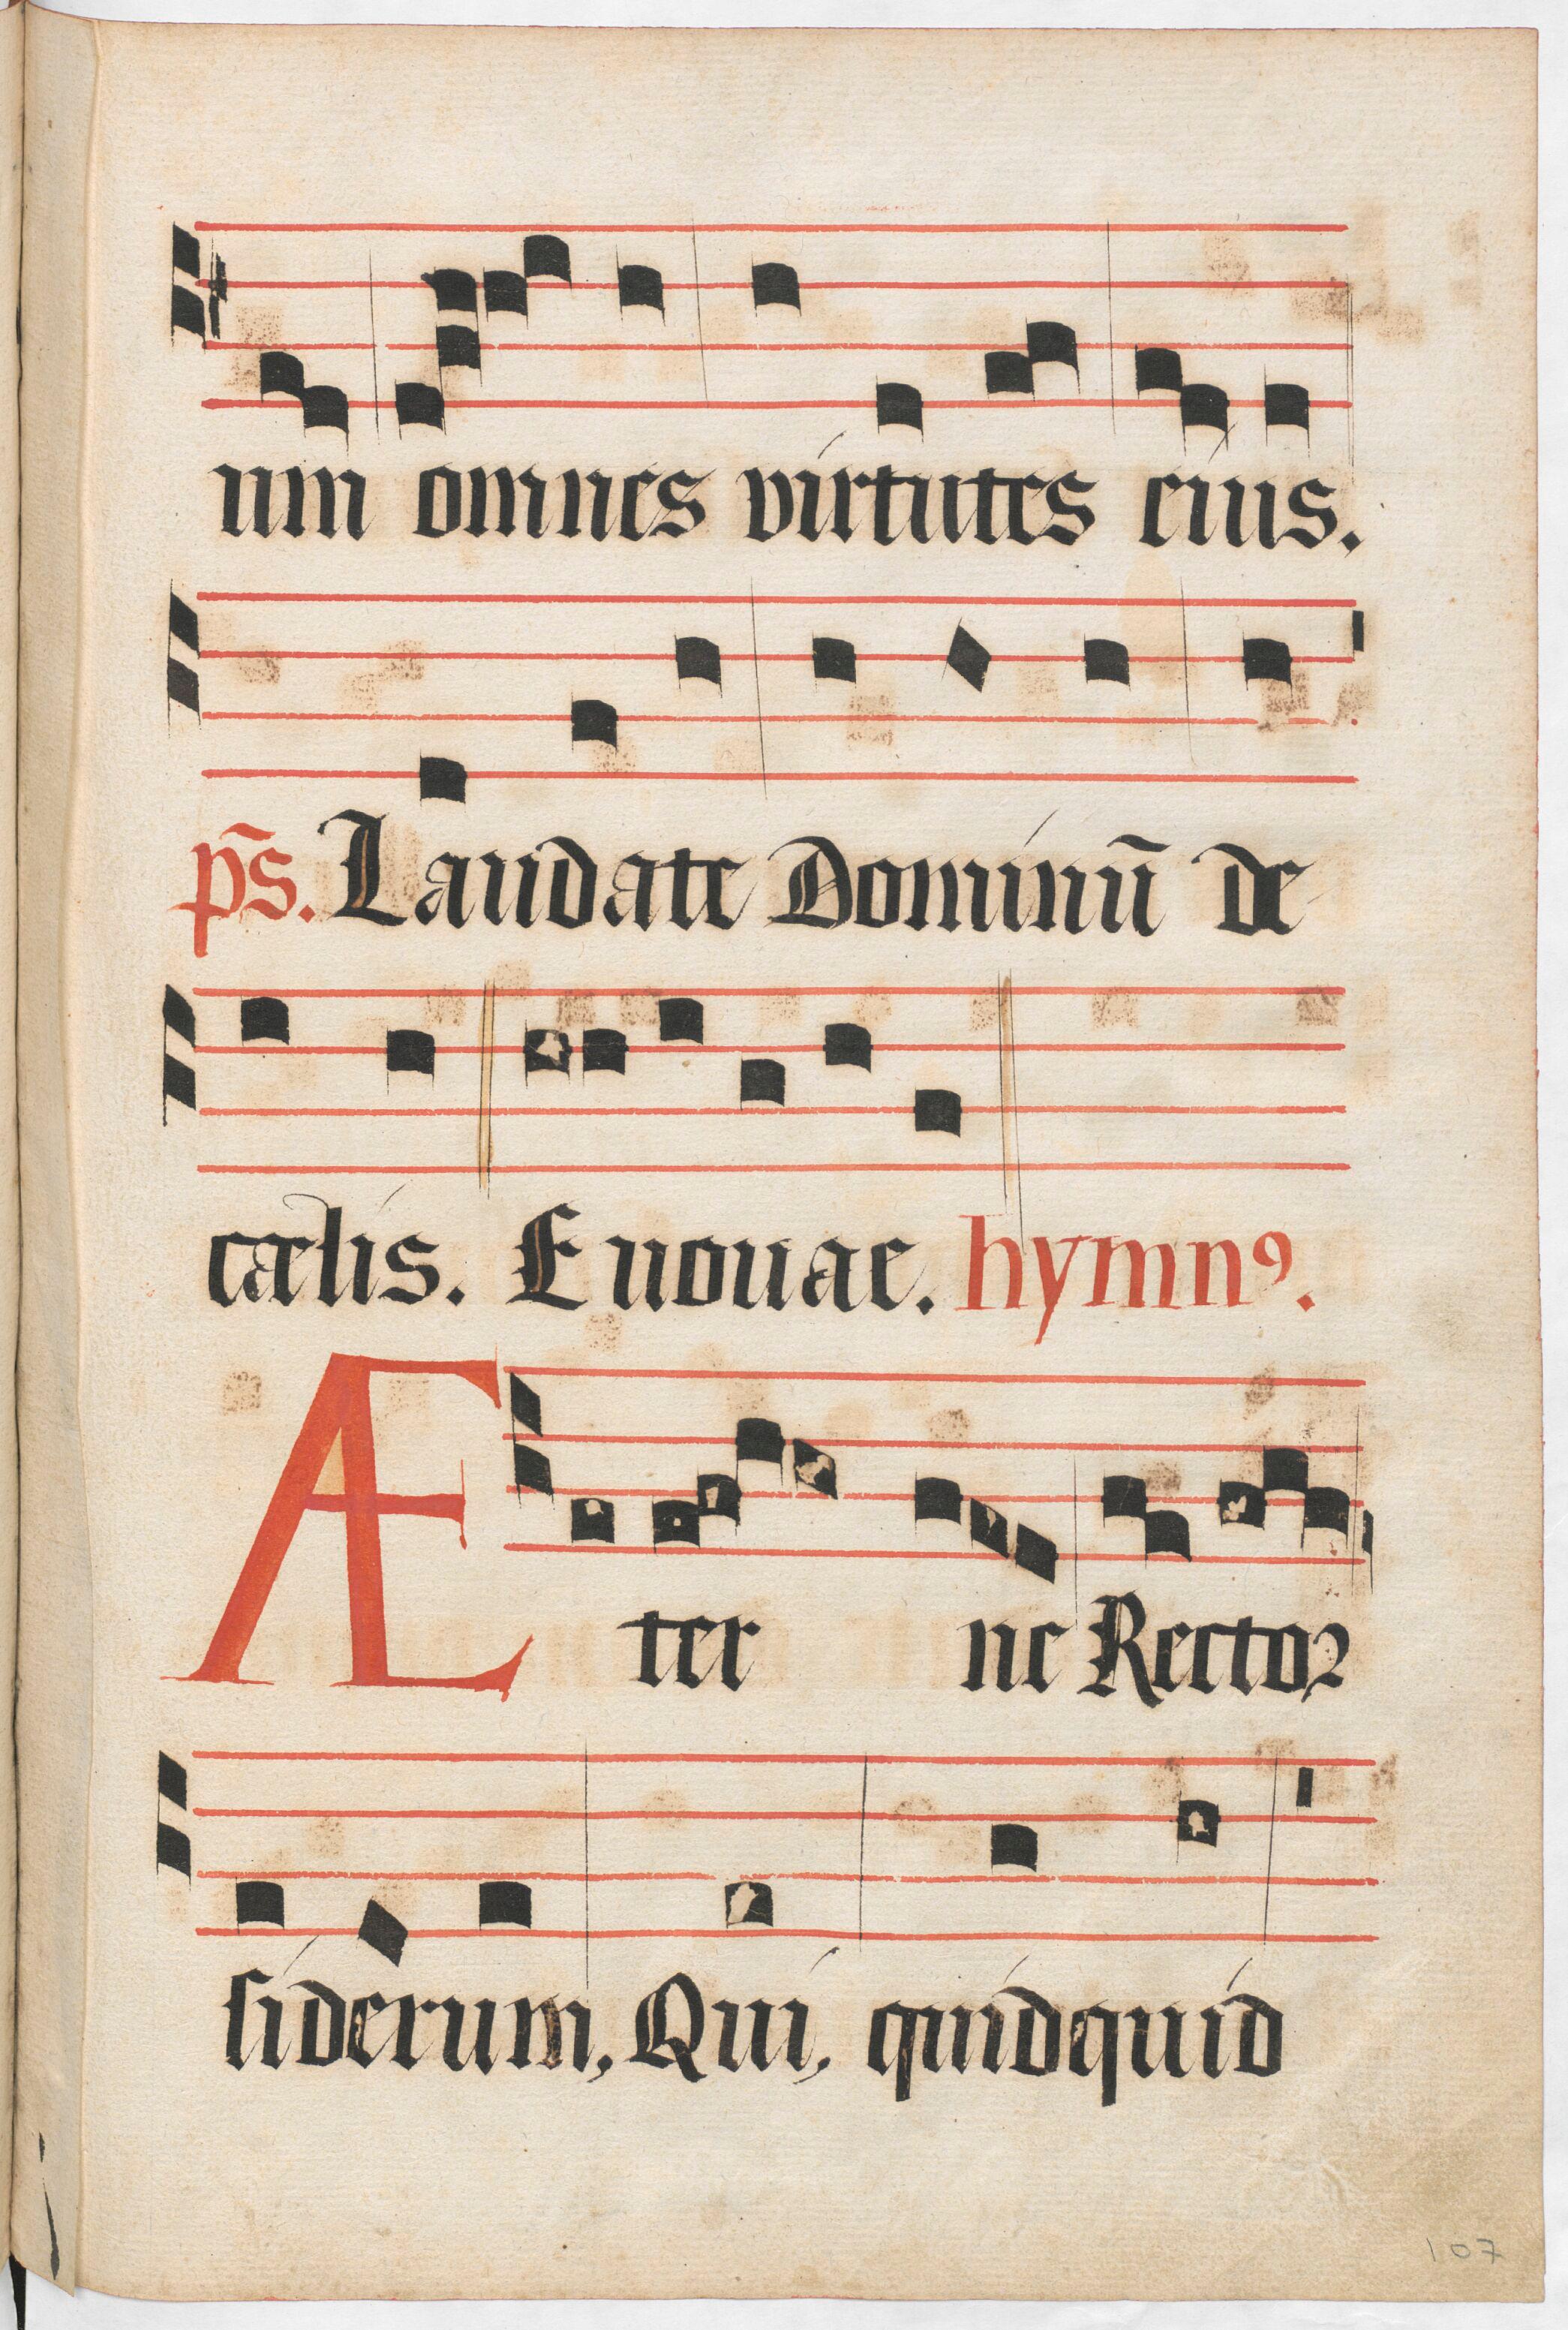 um omnes virtutes eius.
ps̄. Laudate Dominū de
cælis. Euouae. hymnꝰ.
Æter ne Rectoꝛ
siderum, Qui, quidquid
107